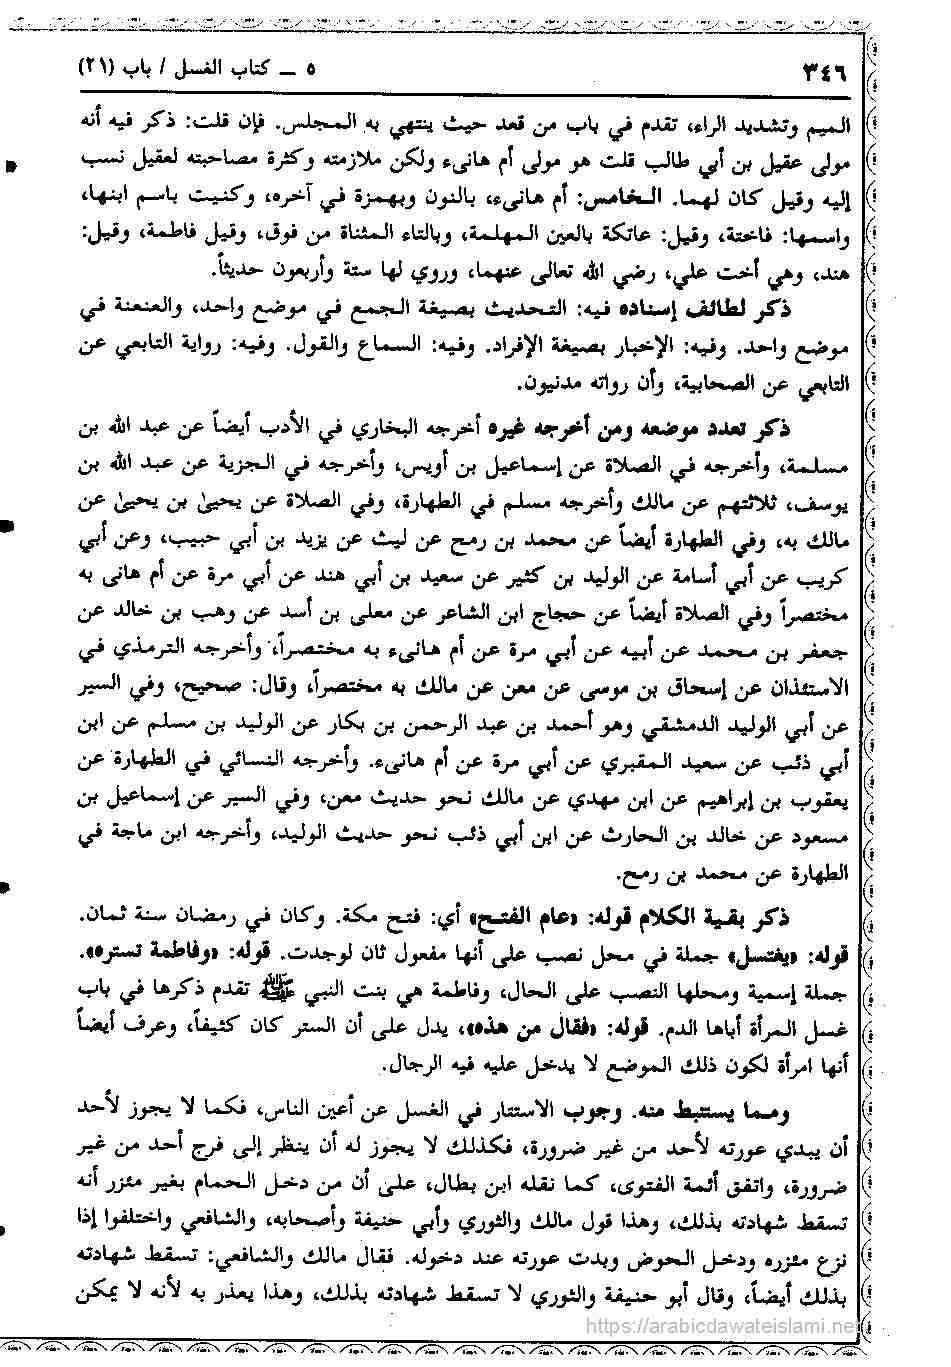 ٣٤٦
٥ ــ كتاب الغسل / باب (٢١)
الميم وتشديد الراء، تقدم في باب من قعد حيث ينتهي به المجلس. فإن قلت: ذكر فيه أنه
مولى عقيل بن أبي طالب قلت هو مولى أم هانىء ولكن ملازمته وكثرة مصاحبته لعقيل نسب
إليه وقيل كان لهما. الخامس: أم هانىء، بالنون وبهمزة في آخره، وكنيت باسم ابنها،
واسمها: فاختة، وقيل: عاتكة بالعين المهملة، وبالتاء المثناة من فوق، وقيل فاطمة، وقيل:
هند، وهي أخت علي، رضي الله تعالى عنهما، وروي لها ستة وأربعون حديثاً.
ذكر لطائف إسناده فيه: التحديث بصيغة الجمع في موضع واحد، والعنعنة في
موضع واحد. وفيه: الإخبار بصيغة الإفراد. وفيه: السماع والقول. وفيه: رواية التابعي عن
التابعي عن الصحابية، وأن رواته مدنيون.
ذكر تعدد موضعه ومن أخرجه غيره أخرجه البخاري في الأدب أيضاً عن عبد الله بن
مسلمة، وأخرجه في الصلاة عن إسماعيل بن أويس، وأخرجه في الجزية عن عبد الله بن
يوسف، ثلاثتهم عن مالك وأخرجه مسلم في الطهارة، وفي الصلاة عن يحيىٰ بن يحيىٰ عن
مالك به، وفي الطهارة أيضاً عن محمد بن رمح عن ليث عن يزيد بن أبي حبيب، وعن أبي
كريب عن أبي أسامة عن الوليد بن كثير عن سعيد بن أبي هند عن أبي مرة عن أم هانى به
مختصراً وفي الصلاة أيضاً عن حجاج ابن الشاعر عن معلى بن أسد عن وهب بن خالد عن
جعفر بن محمد عن أبيه عن أبي مرة عن أم هانىء به مختصراً، وأخرجه الترمذي في
الاستئذان عن إسحاق بن موسى عن معن عن مالك به مختصراً، وقال: صحيح، وفي السير
عن أبي الوليد الدمشقي وهو أحمد بن عبد الرحمن بن بكار عن الوليد بن مسلم عن ابن
أبي ذئب عن سعيد المقبري عن أبي مرة عن أم هانىء. وأخرجه النسائي في الطهارة عن
يعقوب بن إبراهيم عن ابن مهدي عن مالك نحو حديث معن، وفي السير عن إسماعيل بن
مسعود عن خالد بن الحارث عن ابن أبي ذئب نحو حديث الوليد، وأخرجه ابن ماجة في
الطهارة عن محمد بن رمح.
ذكر بقية الكلام قوله: «عام الفتح» أي: فتح مكة. وكان في رمضان سنة ثمان.
قوله: «يغتسل» جملة في محل نصب على أنها مفعول ثان لوجدت. قوله: «وفاطمة تستره».
جملة إسمية ومحلها النصب على الحال، وفاطمة هي بنت النبي ﷺ تقدم ذكرها في باب
غسل المرأة أباها الدم. قوله: «فقال من هذه»، يدل على أن الستر كان كثيفاً، وعرف أيضاً
أنها امرأة لكون ذلك الموضع لا يدخل عليه فيه الرجال.
ومما يستنبط منه. وجوب الاستتار في الغسل عن أعين الناس، فكما لا يجوز لأحد
أن يبدي عورته لأحد من غير ضرورة، فكذلك لا يجوز له أن ينظر إلى فرج أحد من غير
ضرورة، واتفق أئمة الفتوى، كما نقله ابن بطال، على أن من دخل الحمام بغير مئزر أنه
تسقط شهادته بذلك، وهذا قول مالك والثوري وأبي حنيفة وأصحابه، والشافعي واختلفوا إذا
نزع مئزره ودخل الحوض وبدت عورته عند دخوله. فقال مالك والشافعي: تسقط شهادته
بذلك أيضاً، وقال أبو حنيفة والثوري لا تسقط شهادته بذلك، وهذا يعذر به لأنه لا يمكن
https://arabicdawateislami.net